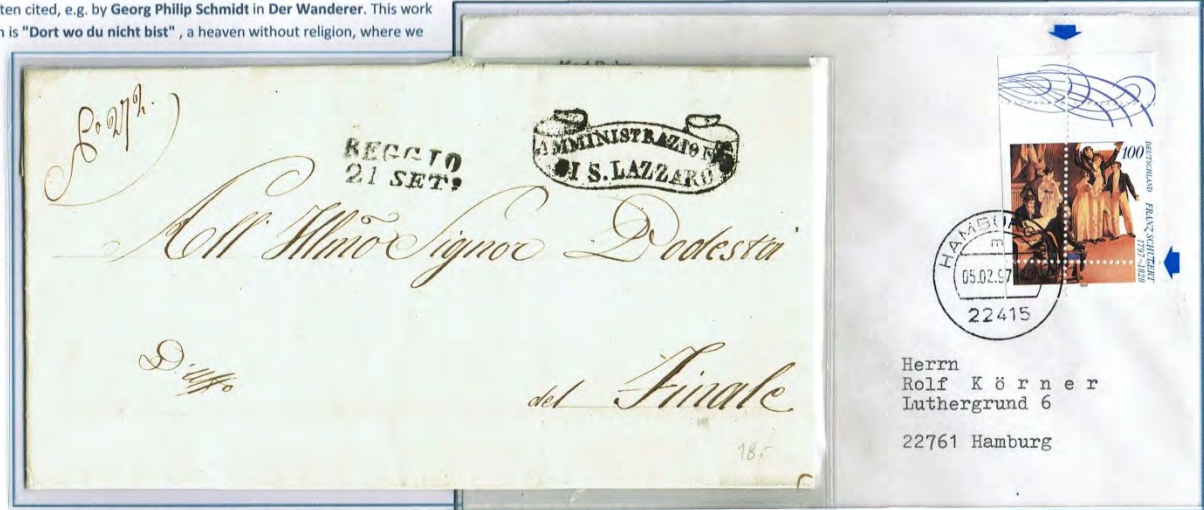 ten cited, e.g. by Georg Philip Schmidt in Der Wanderer. This work
is "Dort wo du nicht bist" , a heaven without religion, where we
REGGIO
21 SET.
AMMINISTRAZIONE
DI S. LAZZARO
All' Illmo Signor Podestà
D'Uffo
del Finale
18.-
100
DEUTSCHLAND
FRANZ SCHUBERT
1797-1828
HAMBURG
m
05.02.97
22415
Herrn
Rolf Körner
Luthergrund 6
22761 Hamburg